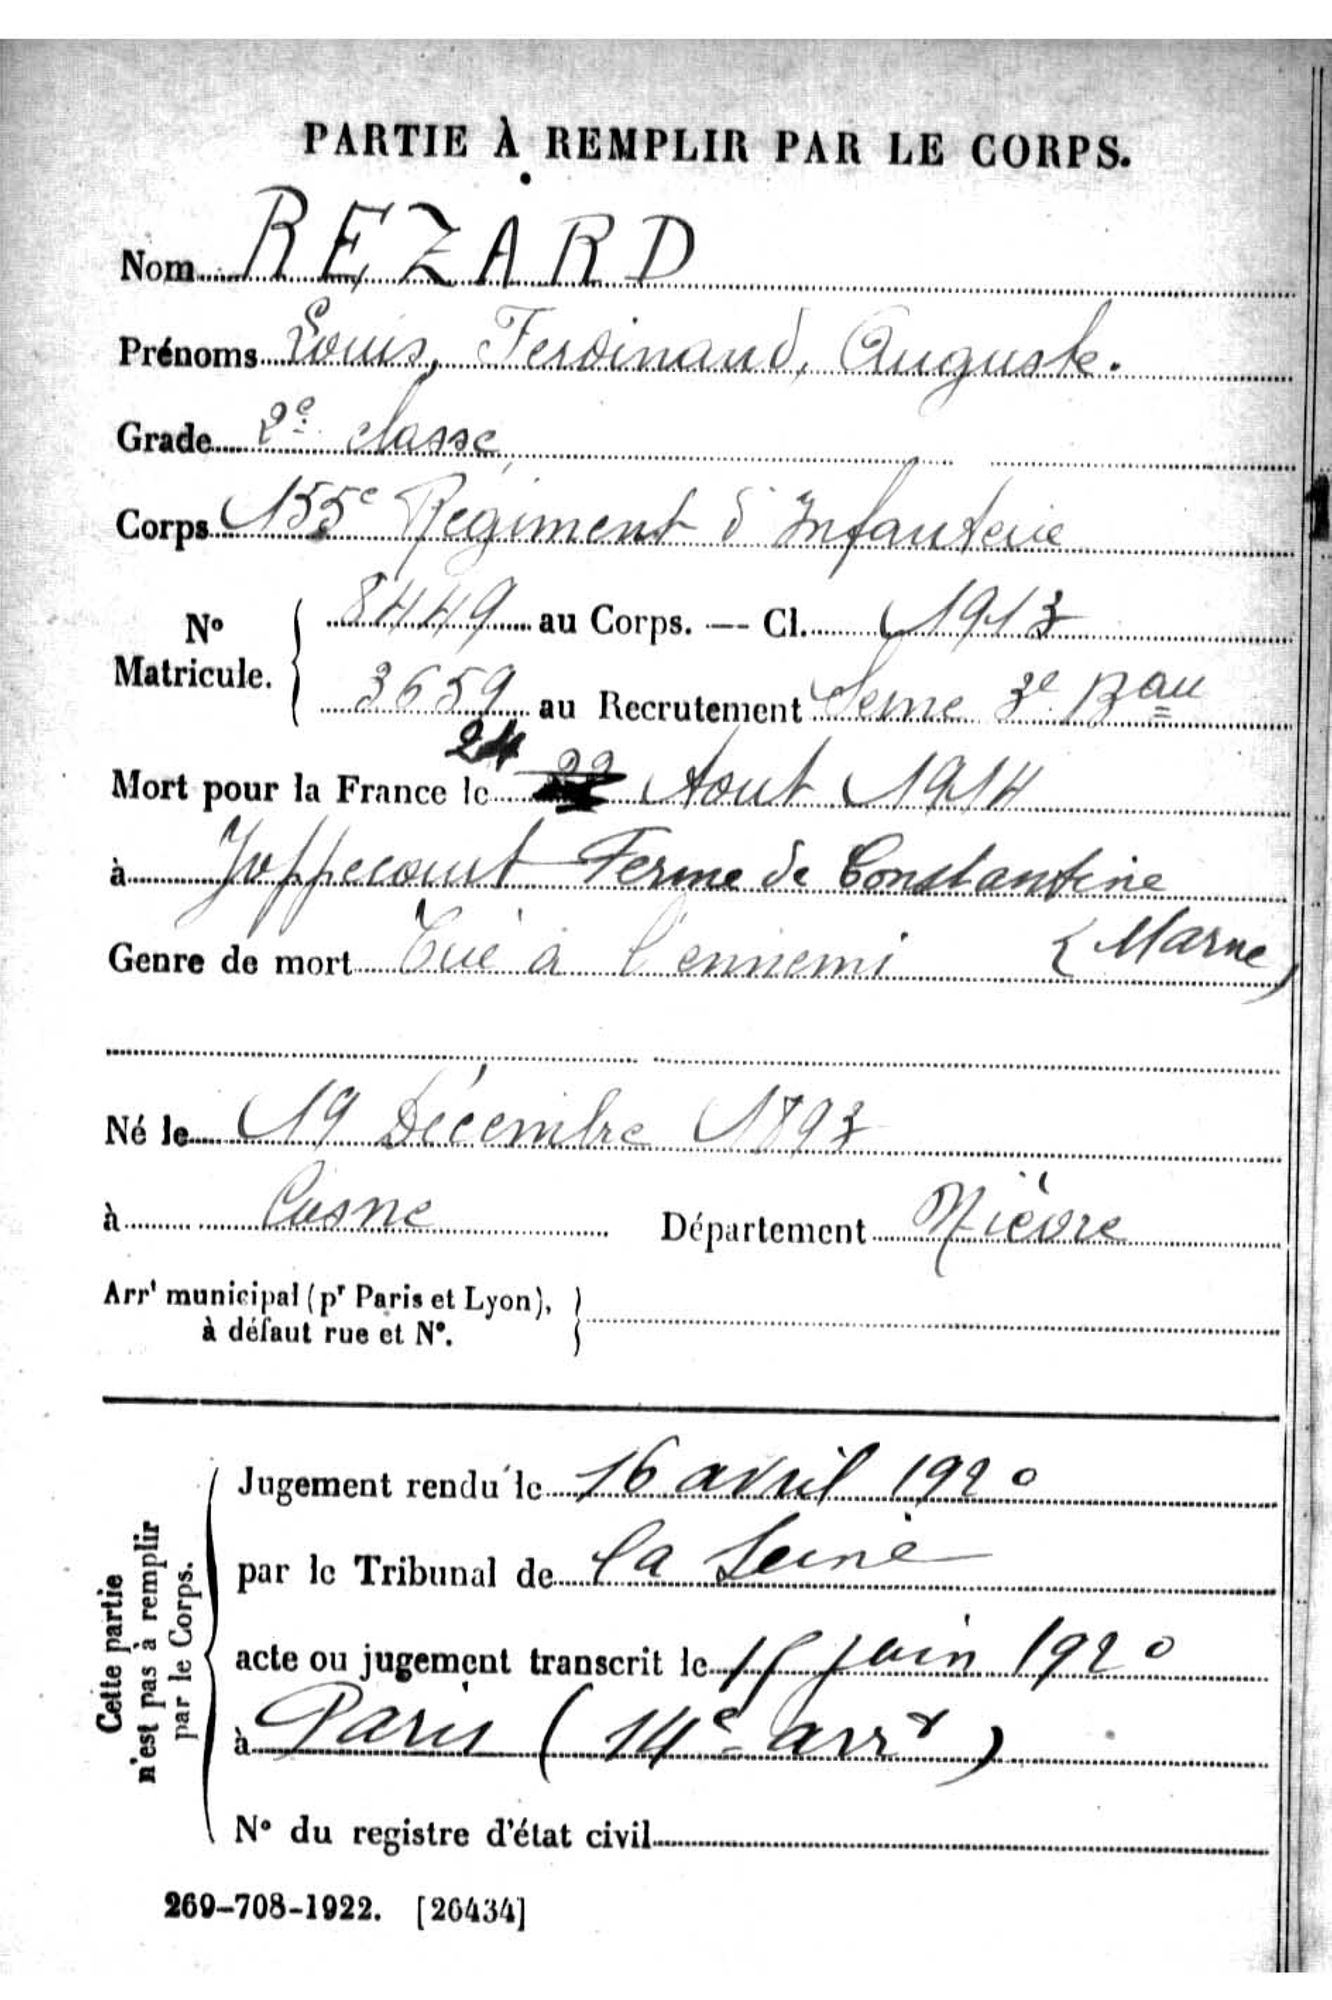 PARTIE À REMPLIR PAR LE CORPS.
Nom REZARD
Prénoms Louis, Ferdinand, Auguste.
Grade 2e classe
Corps 155e Régiment d'Infanterie
No Matricule. { 8449 au Corps. — Cl. 1913
3659 au Recrutement Seine 3e Bau
24
Mort pour la France le 22 Aout 1914
à Joppecourt Ferme de Constantine
(Marne)
Genre de mort Tué à l'ennemi
Né le 19 Décembre 1893
à Cosne Département Nièvre
Arrt municipal (pr Paris et Lyon),
à défaut rue et No.
Cette partie
n'est pas à remplir
par le Corps.
Jugement rendu le 16 avril 1920
par le Tribunal de la Seine
acte ou jugement transcrit le 15 juin 1920
à Paris (14e arrt)
No du registre d'état civil
269-708-1922. [26434]